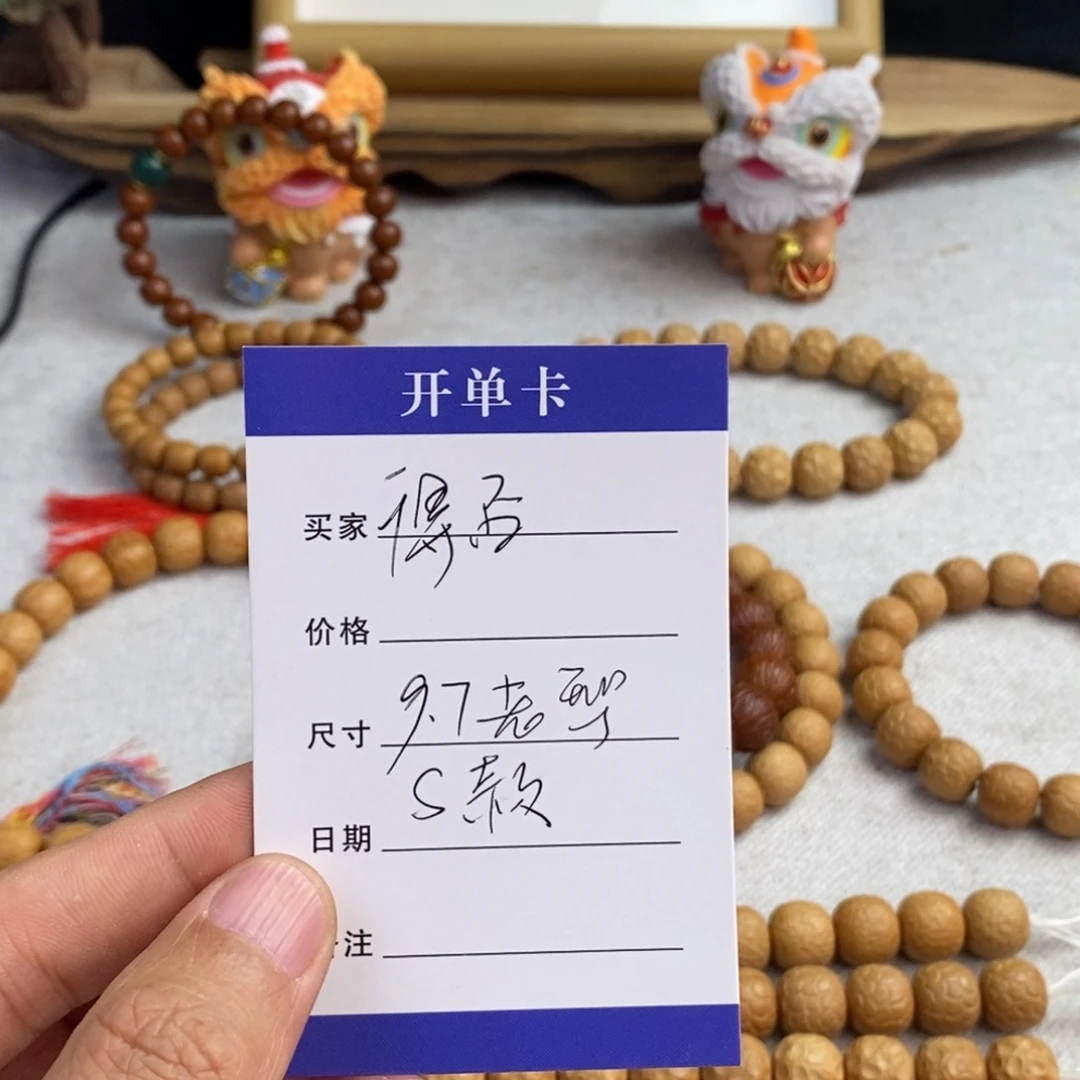 开单卡
买家 得否
价格
尺寸 9.7老型
S款
日期
注